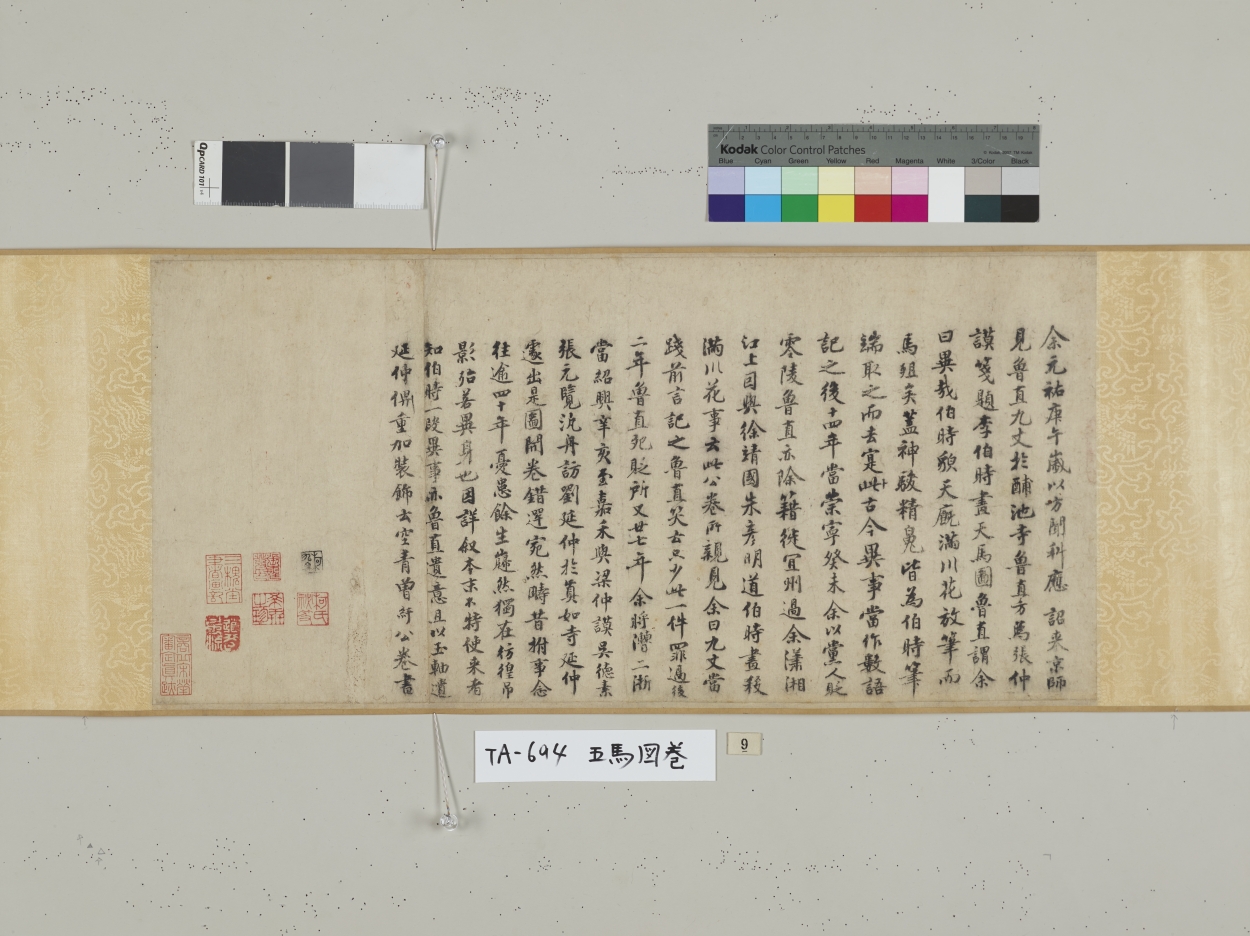 余元祐庚午歲以方聞科應詔来京師
見魯直九丈於酺池寺魯直方為張仲
謨箋題李伯時畫天馬圖魯直謂余
曰異哉伯時貌天廄滿川花放筆而
馬殂矣蓋神駿精魄皆為伯時筆
端取之而去寔此古今異事當作數語
記之後十四年當崇寧癸未余以黨人貶
零陵魯直亦除籍徙宜州過余瀟湘
江上因與徐靖國朱彦明道伯時畫殺
滿川花事云此公卷所親見余曰九丈當
踐前言記之魯直笑云只少此一件罪過後
二年魯直死貶所又廿七年余將漕二浙
當紹興辛亥至嘉禾與梁仲謨吴德素
張元覽汎舟訪劉延仲於真如寺延仲
遽出是圖開卷錯愕宛然疇昔拊事念
往逾四十年憂患餘生巋然獨在彷徨吊
影殆若異身也因詳叙本末不特使来者
知伯時一段異事亦魯直遺意且以玉軸遺
延仲俾重加裝飾云空青曾紆公卷書
QPCARD 101
Kodak Color Control Patches
Blue Cyan Green Yellow Red Magenta White 3/Color Black
TA-694 五馬図巻
9